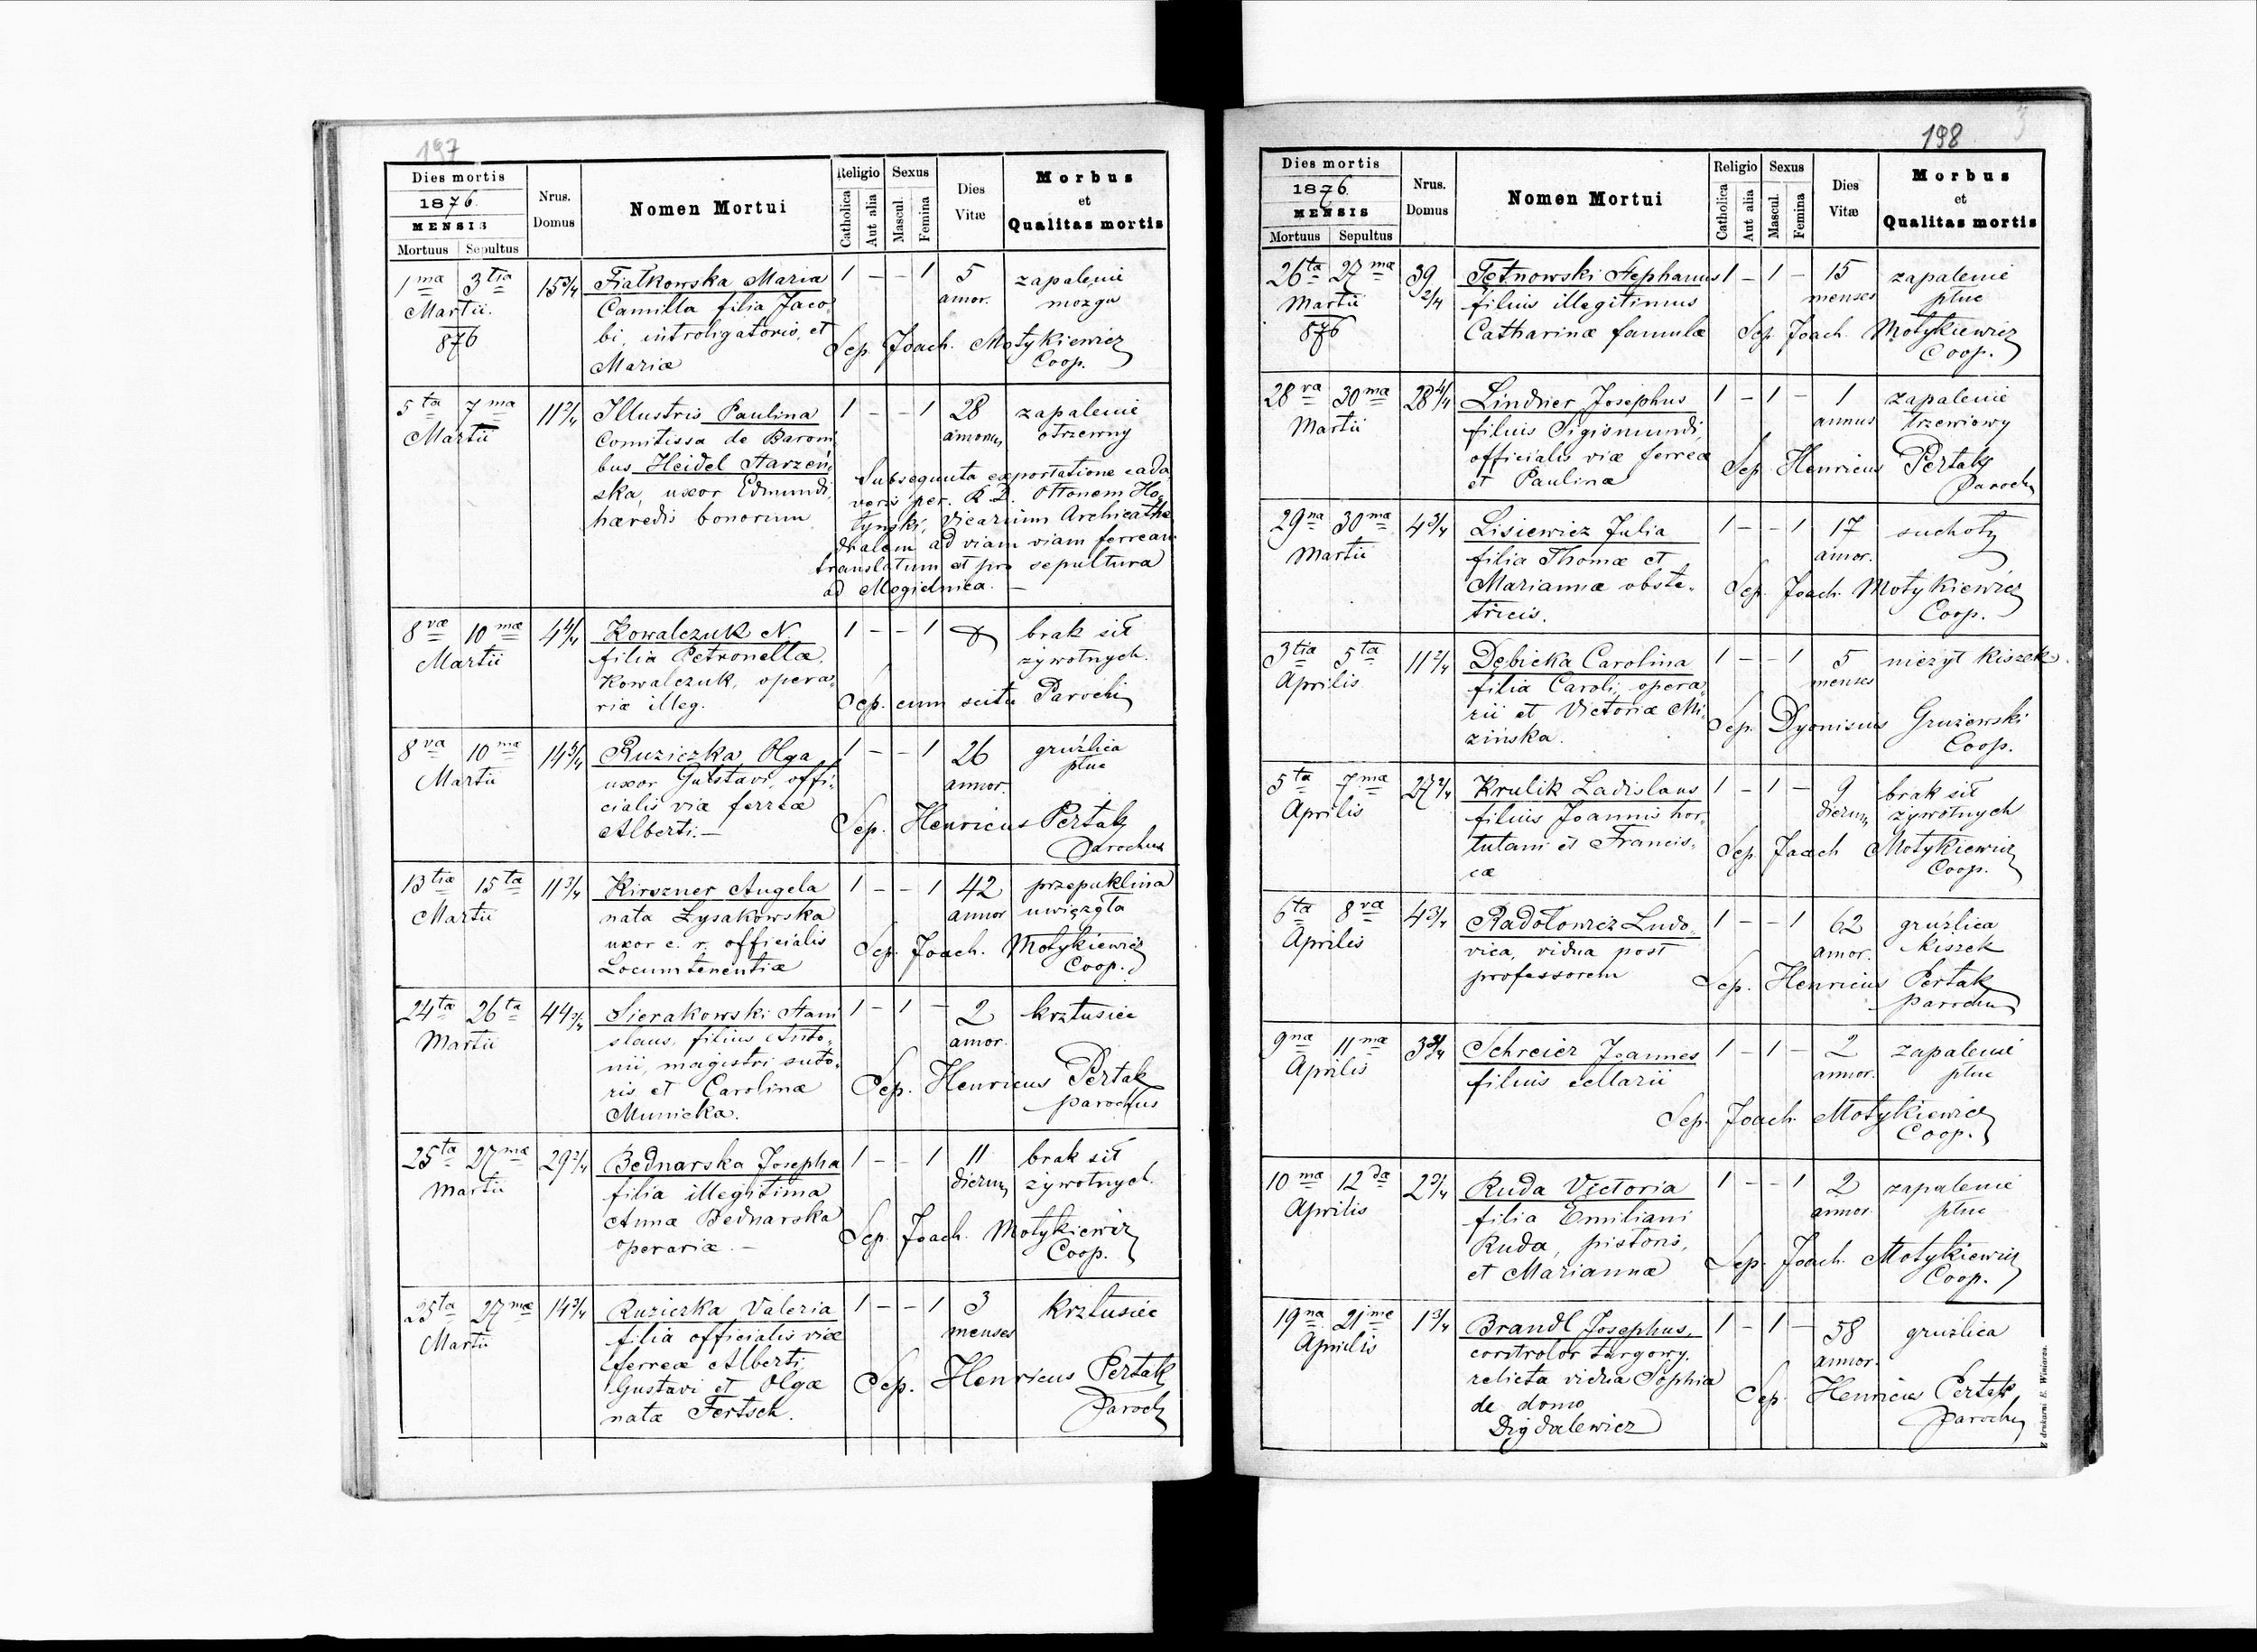 197
Dies mortis
1876.
MENSIS
Mortuus Sepultus
Nrus.
Domus
Nomen Mortui
Religio
Catholica
Aut alia
Sexus
Mascul.
Femina
Dies
Vitæ
Morbus
et
Qualitas mortis
1ma 3tia 15 3/4 Fiałkowska Maria 1 – – 1 5 zapalenie
Martii. Camilla filia Jaco- annor. mozgu
876 bi, introligatoris, et Sep. Joach. Motykiewicz
Mariæ Coop.
5ta 7ma 11 2/4 Illustris Paulina 1 – – 1 28 zapalenie
Martii Comitissa de Baroni annorum otrzewny
bus Heidel Starzeń-
ska, uxor Edmundi,
hæredis bonorum
Subsequuta exportatione cada
veris per. R. D. Ottonem Ho-
tynski, Vicarium Archicathe
dralem ad viam viam ferream
translatum et pro sepultura
ad Mogielnica. –
8væ 10mæ 4 4/4 Kowalczuk N. 1 – – 1 brak sił
Martii filia Petronellæ, żywotnych.
Kowalczuk, opera-
riæ illeg. Sep. cum scitu Parochi
8va 10ma 14 3/4 Ruziczka Olga 1 – – 1 26 gruźlica
Martii uxor Gustavi, offi- annor. płuc
cialis viæ ferreæ Sep. Henricus Pertak
Alberti. – Parochus
13tia 15ta 11 3/4 Kirszner Angela 1 – – 1 42 przepuklina
Martii nata Łysakowska annor uwięzgła
uxor c. r. officialis Sep. Joach. Motykiewicz
Locumtenentiæ Coop.
24ta 26ta 44 3/4 Sierakowski Stani 1 – 1 – 2 krztusiec
Martii slaus, filius Anto- annor.
nii, magistri suto- Sep. Henricus Pertak
ris et Carolinæ parochus
Municka.
25ta 27mæ 29 2/4 Bednarska Josepha 1 – – 1 11 brak sił
Martii filia illegitima dierum żywotnych.
Annæ Bednarska Sep. Joach. Motykiewicz
operariæ. – Coop.
25ta 27mæ 14 3/4 Ruziczka Valeria 1 – – 1 3 Krztusiec
Martii filia officialis viæ menses
ferreæ Alberti
Gustavi et Olgæ Sep. Henricus Pertak
natæ Fertsch. Paroch
198
Dies mortis
1876.
MENSIS
Mortuus Sepultus
Nrus.
Domus
Nomen Mortui
Religio
Catholica
Aut alia
Sexus
Mascul.
Femina
Dies
Vitæ
Morbus
et
Qualitas mortis
26ta 27mæ 39 Tętnowski Stephanus 1 – 1 – 15 zapalenie
Martii 2/4 filius illegitimus menses płuc
876 Catharinæ famulæ Sep. Joach. Motykiewicz
Coop.
28va 30ma 28 4/4 Lindner Josephus 1 – 1 – 1 zapalenie
Martii filius Sigismundi, annus trzewiowy
officialis viæ ferreæ Sep. Henricus Pertak
et Paulinæ Paroch
29na 30mæ 4 3/4 Lisiewicz Julia 1 – – 1 17 suchoty
Martii filia Thomæ et annor.
Mariannæ obste- Sep. Joach. Motykiewicz
tricis. Coop.
3tia 5ta 11 2/4 Dębicka Carolina 1 – – 1 5 nieżyt Kiszek.
Aprilis filia Caroli, opera- menses
rii et Victoriæ Mi- Sep. Dyonisius Grużewski
zińska. Coop.
5ta 7mæ 27 2/4 Krulik Ladislaus 1 – 1 – 9 brak sił
Aprilis filius Joannis hor- dierum żywotnych
tulani et Francis- Sep. Joach Motykiewicz
cæ Coop.
6ta 8væ 4 3/4 Radołowicz Ludo- 1 – – 1 62 gruźlica
Aprilis vica, vidua post annor. Kiszek
professorem Sep. Henricus Pertak
parochus
9næ 11mæ 3 3/4 Schreier Joannes 1 – 1 – 2 zapalenie
Aprilis filius cellarii annor. płuc
Sep. Joach. Motykiewicz
Coop.
10mæ 12dæ 2 3/4 Ruda Victoria 1 – – 1 2 zapalenie
Aprilis filia Emiliani annor. płuc
Ruda, pistoris, Sep. Joach. Motykiewicz
et Mariannæ Coop.
19na 21me 1 3/4 Brandl Josephus, 1 – 1 – 58 gruźlica
Aprilis controlor targowy. annor.
relicta vidua Sophia Sep. Henricus Pertak
de domo Paroch
Digdalewicz
Z drukarni E. Winiarza.